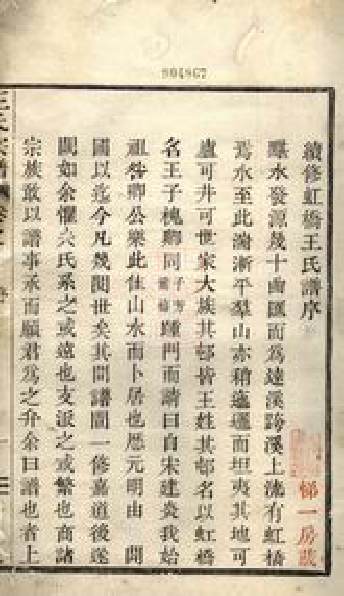 904867
續修虹橋王氏譜序
曝水發源幾十曲匯而為達溪跨溪上流有虹橋
焉水至此漸平犁山亦稍迤邐而坦夷其地可
廬可井可世家大族其邨皆王姓其邨名以虹橋
名王子槐卿同 踵門而請曰自宋建炎我始
祖 卿公樂此佳山水而卜居也歷元明由 聞
國以迄今凡幾閱世矣其間譜閱一修嘉道後遂
闃如余懼 氏系之或遠也支派之或繁也商諸
宗族敢以譜事承而願君為之弁余曰譜也者上
悌一房